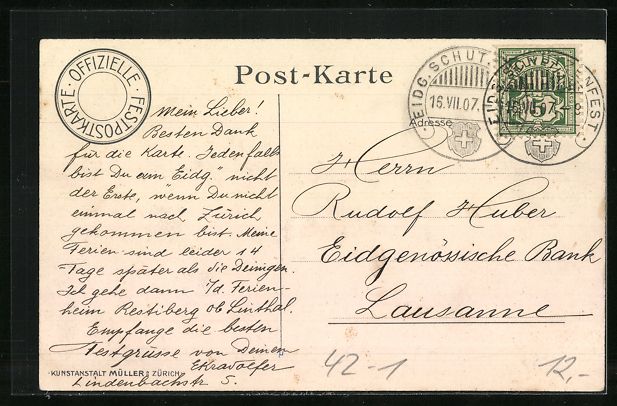 OFFIZIELLE · FESTPOSTKARTE ·
Post-Karte
EIDG. SCHÜTZ
16.VII.07.
EIDG. SCHÜTZENFEST
16.VII.07
5
Adresse
Mein Lieber!
Besten Dank
für die Karte. Jedenfalls
bist Du am Eidg." nicht
der Erste, wenn Du nicht
einmal nach Zürich
gekommen bist. Meine
Ferien sind leider 14
Tage später als die Deinigen.
Ich gehe dann i/d. Ferien-
heim Restiberg ob Linthal.
Empfange die besten
Festgrüsse von Deinem
Lindenbachstr 5.
KUNSTANSTALT MÜLLER, ZÜRICH
Herrn
Rudolf Huber
Eidgenössische Bank
Lausanne
42-1
12,-